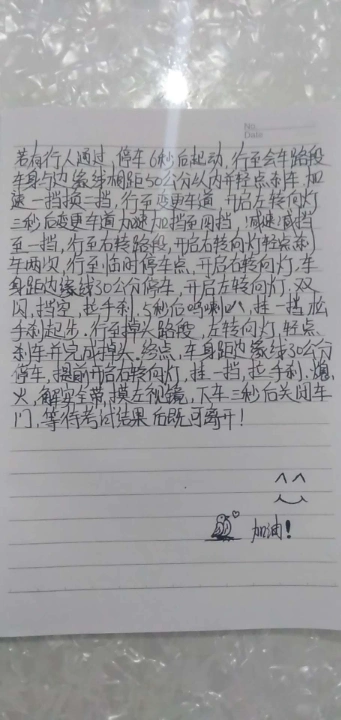 No.
Date
若有行人通过,停车6秒后起动,行至会车路段
车身与边缘线相距50公分以内并轻点刹车,加
速一挡换二挡,行至变更车道,开启左转向灯
三秒后变更车道加速加挡至四挡,减速减挡
至一挡,行至右转路段,开启右转向灯轻点刹
车两次,行至临时停车点,开启右转向灯,车
身距边缘线30公分停车,开启左转向灯,双
闪,挡空,拉手刹,5秒后鸣喇叭,挂一挡,松
手刹起步,行至掉头路段,左转向灯,轻点
刹车并完成掉头,终点,车身距边缘线30公分
停车,提前开启右转向灯,挂一挡,拉手刹,熄
火,解安全带,摸左视镜,下车三秒后关闭车
门,等待考试结果后既可离开!
加油!